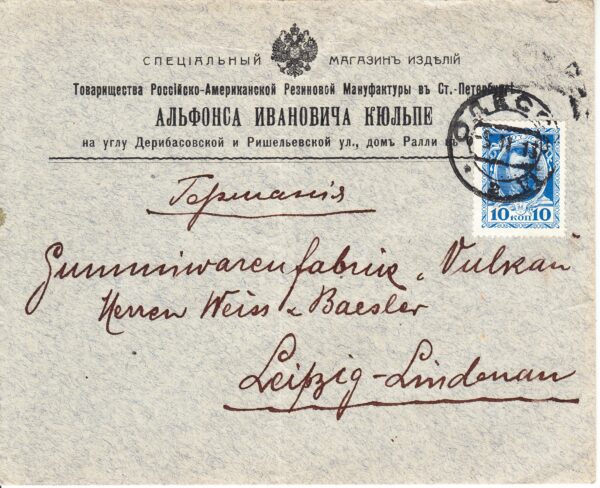 СПЕЦІАЛЬНЫЙ МАГАЗИНЪ ИЗДѢЛІЙ
Товарищества Россійско-Американской Резиновой Мануфактуры въ Ст.-Петербургѣ
АЛЬФОНСА ИВАНОВИЧА КЮЛЬПЕ
на углу Дерибасовской и Ришельевской ул., домъ Ралли въ
ОДЕСС
10 КОП 10
Германія
Gummiwarenfabrik „Vulkan
Herren Weiss & Baesler
Leipzig-Lindenau